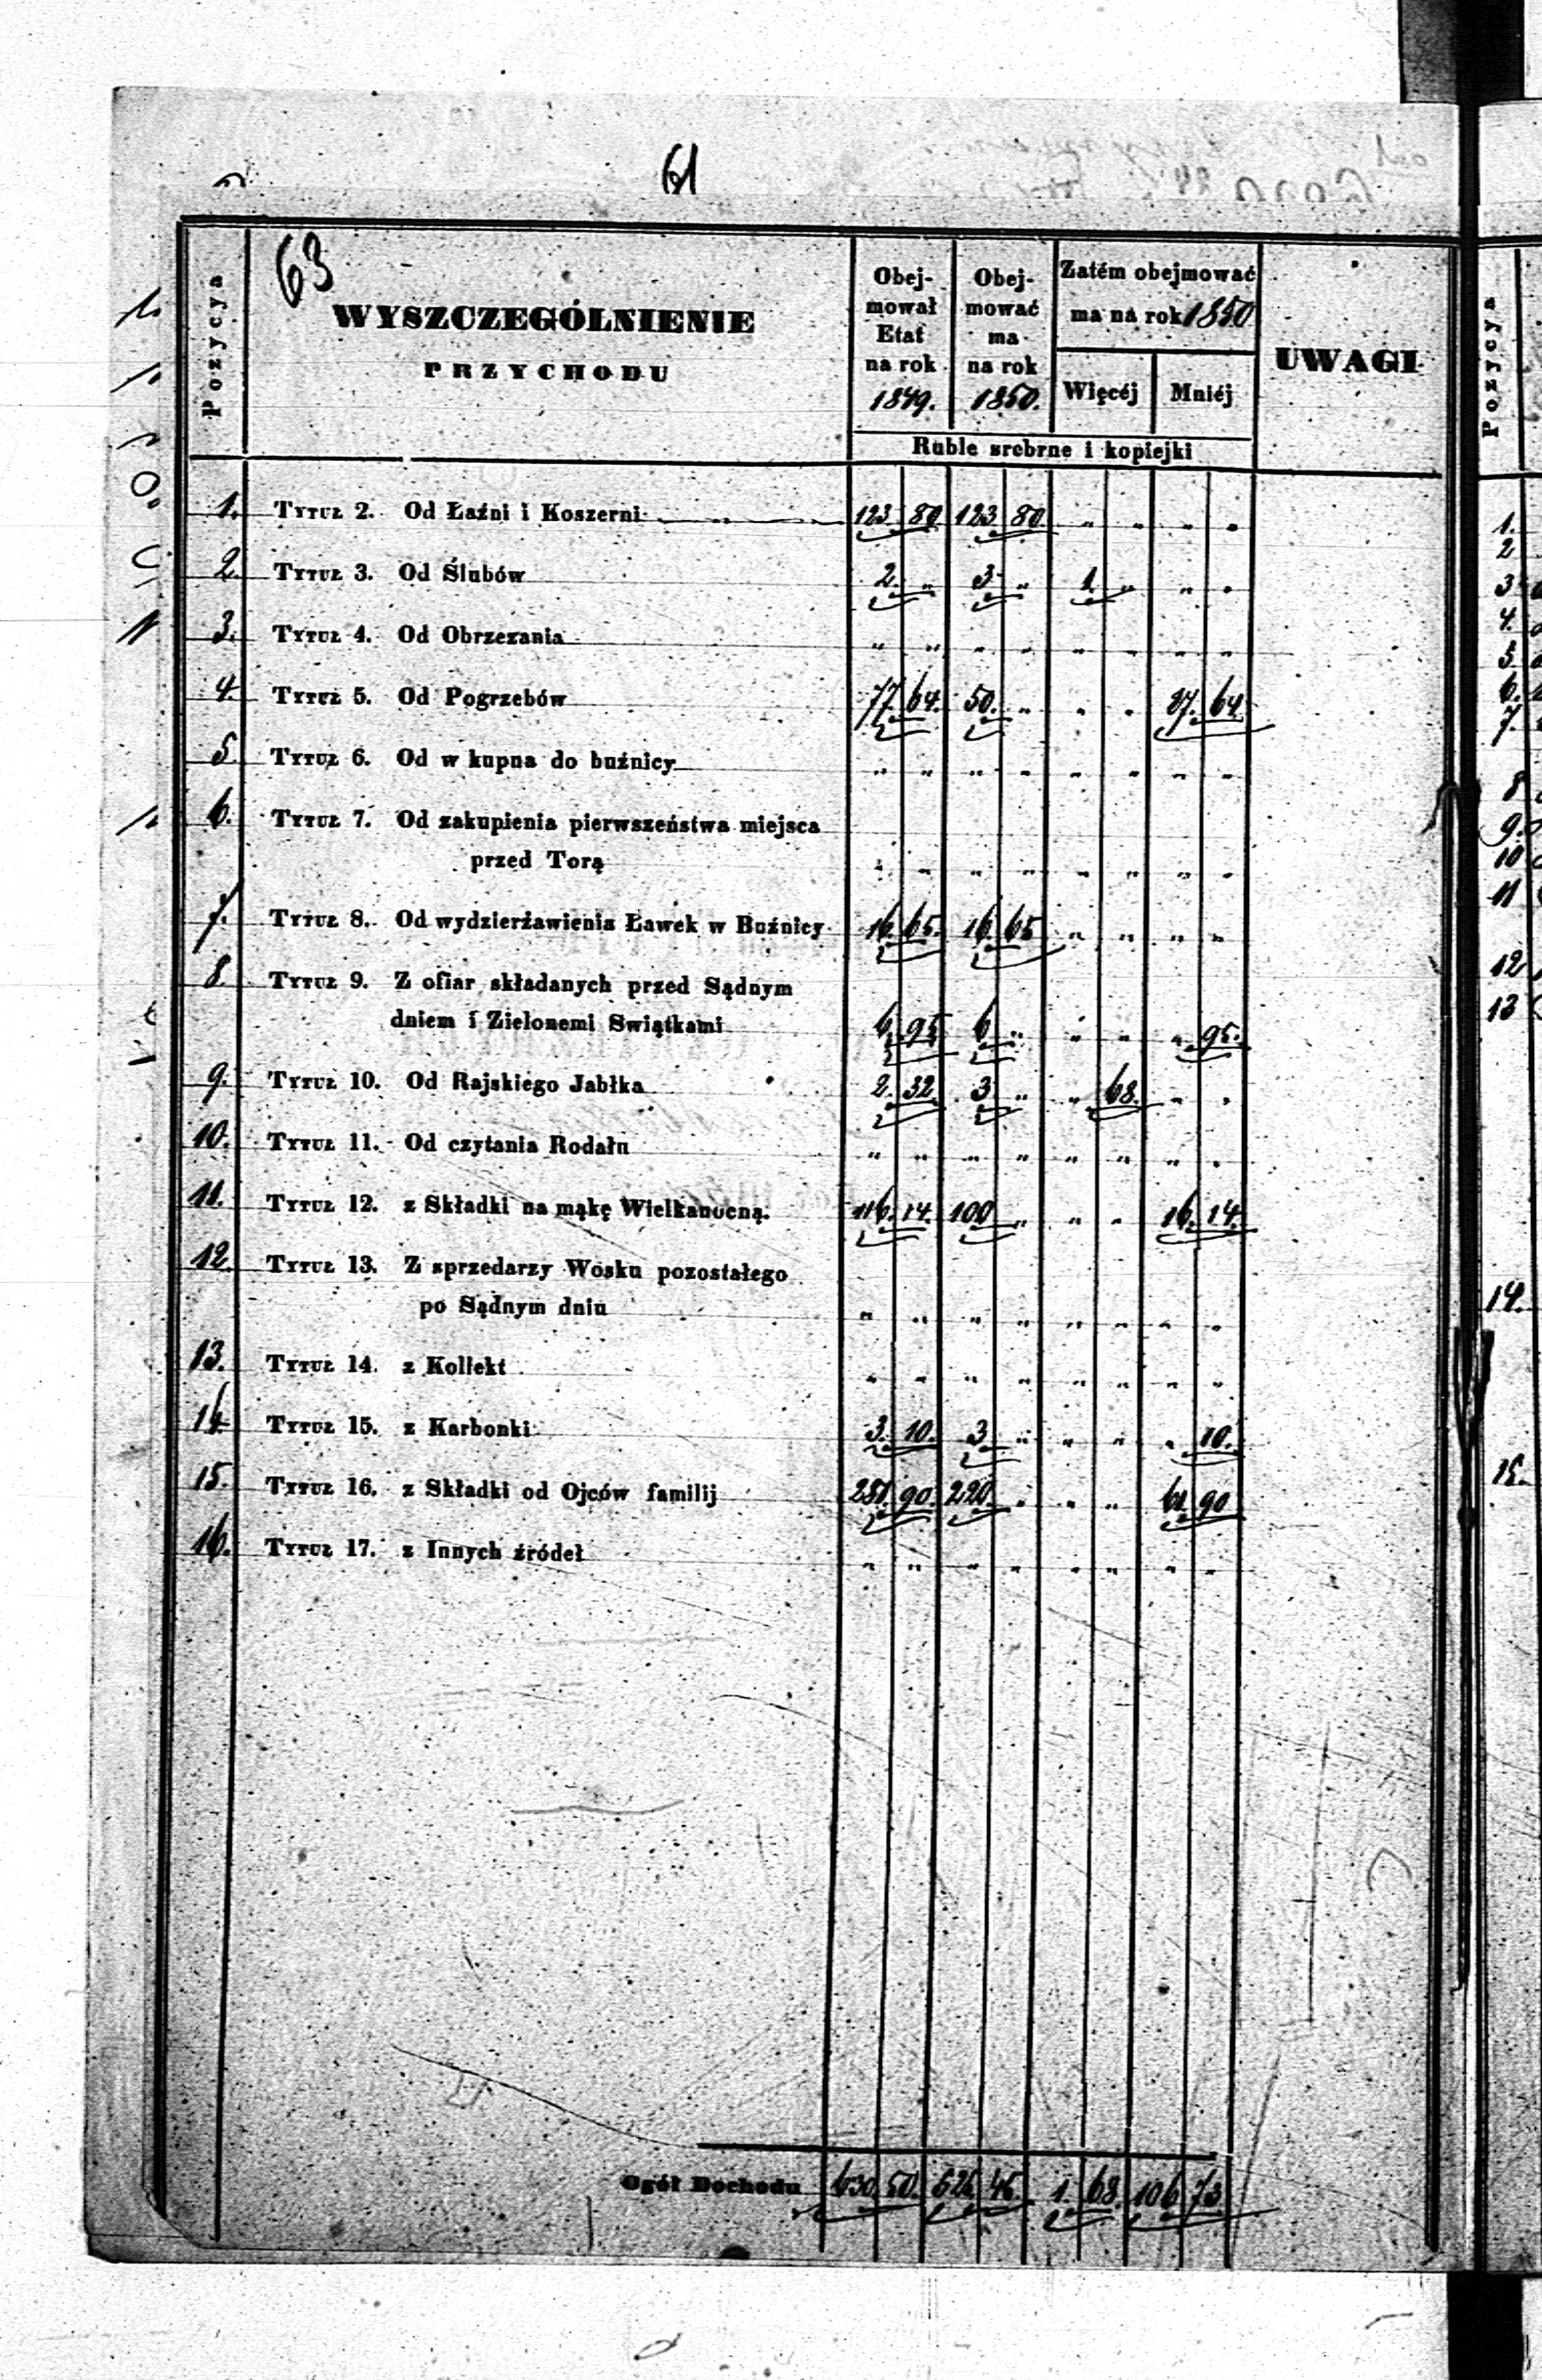 61
63
Pozycya
WYSZCZEGÓLNIENIE
PRZYCHODU
Obej-
mował
Etat
na rok
1849.
Obej-
mować
ma
na rok
1850.
Zatém obejmować
ma na rok 1850
Więcéj Mniéj
UWAGI
Ruble srebrne i kopiejki
1. Tytuł 2. Od Łaźni i Koszerni 123. 80. 123. 80. „ „ „ „
2. Tytuł 3. Od Ślubów 2. „ 3 „ 1. „ „ „
3. Tytuł 4. Od Obrzezania „ „ „ „ „ „ „ „
4. Tytuł 5. Od Pogrzebów 77. 64. 50. „ „ „ 27. 64.
5. Tytuł 6. Od w kupna do buźnicy „ „ „ „ „ „ „ „
6. Tytuł 7. Od zakupienia pierwszeństwa miejsca
przed Torą „ „ „ „ „ „ „ „
7. Tytuł 8. Od wydzierżawienia Ławek w Buźnicy 16. 65. 16. 65 „ „ „ „
8. Tytuł 9. Z ofiar składanych przed Sądnym
dniem i Zielonemi Swiątkami 6. 95. 6 „ „ „ „ 95.
9. Tytuł 10. Od Rajskiego Jabłka 2. 32. 3 „ „ 68. „ „
10. Tytuł 11. Od czytania Rodału „ „ „ „ „ „ „ „
11. Tytuł 12. z Składki na mąkę Wielkanocną. 116. 14. 100 „ „ „ 16. 14.
12. Tytuł 13. Z sprzedarzy Wosku pozostałego
po Sądnym dniu „ „ „ „ „ „ „ „
13. Tytuł 14. z Kollekt „ „ „ „ „ „ „ „
14. Tytuł 15. z Karbonki 3. 10. 3 „ „ „ „ 10.
15. Tytuł 16. z Składki od Ojców familij 281. 90. 220. „ „ „ 61. 90
16. Tytuł 17. z Innych źródeł „ „ „ „ „ „ „ „
Ogół Dochodu 630. 50. 525. 45. 1. 68. 106 73
Pozycya
1.
2
3
4.
5.
6.
7.
8
9.
10
11
12
13
14.
15.